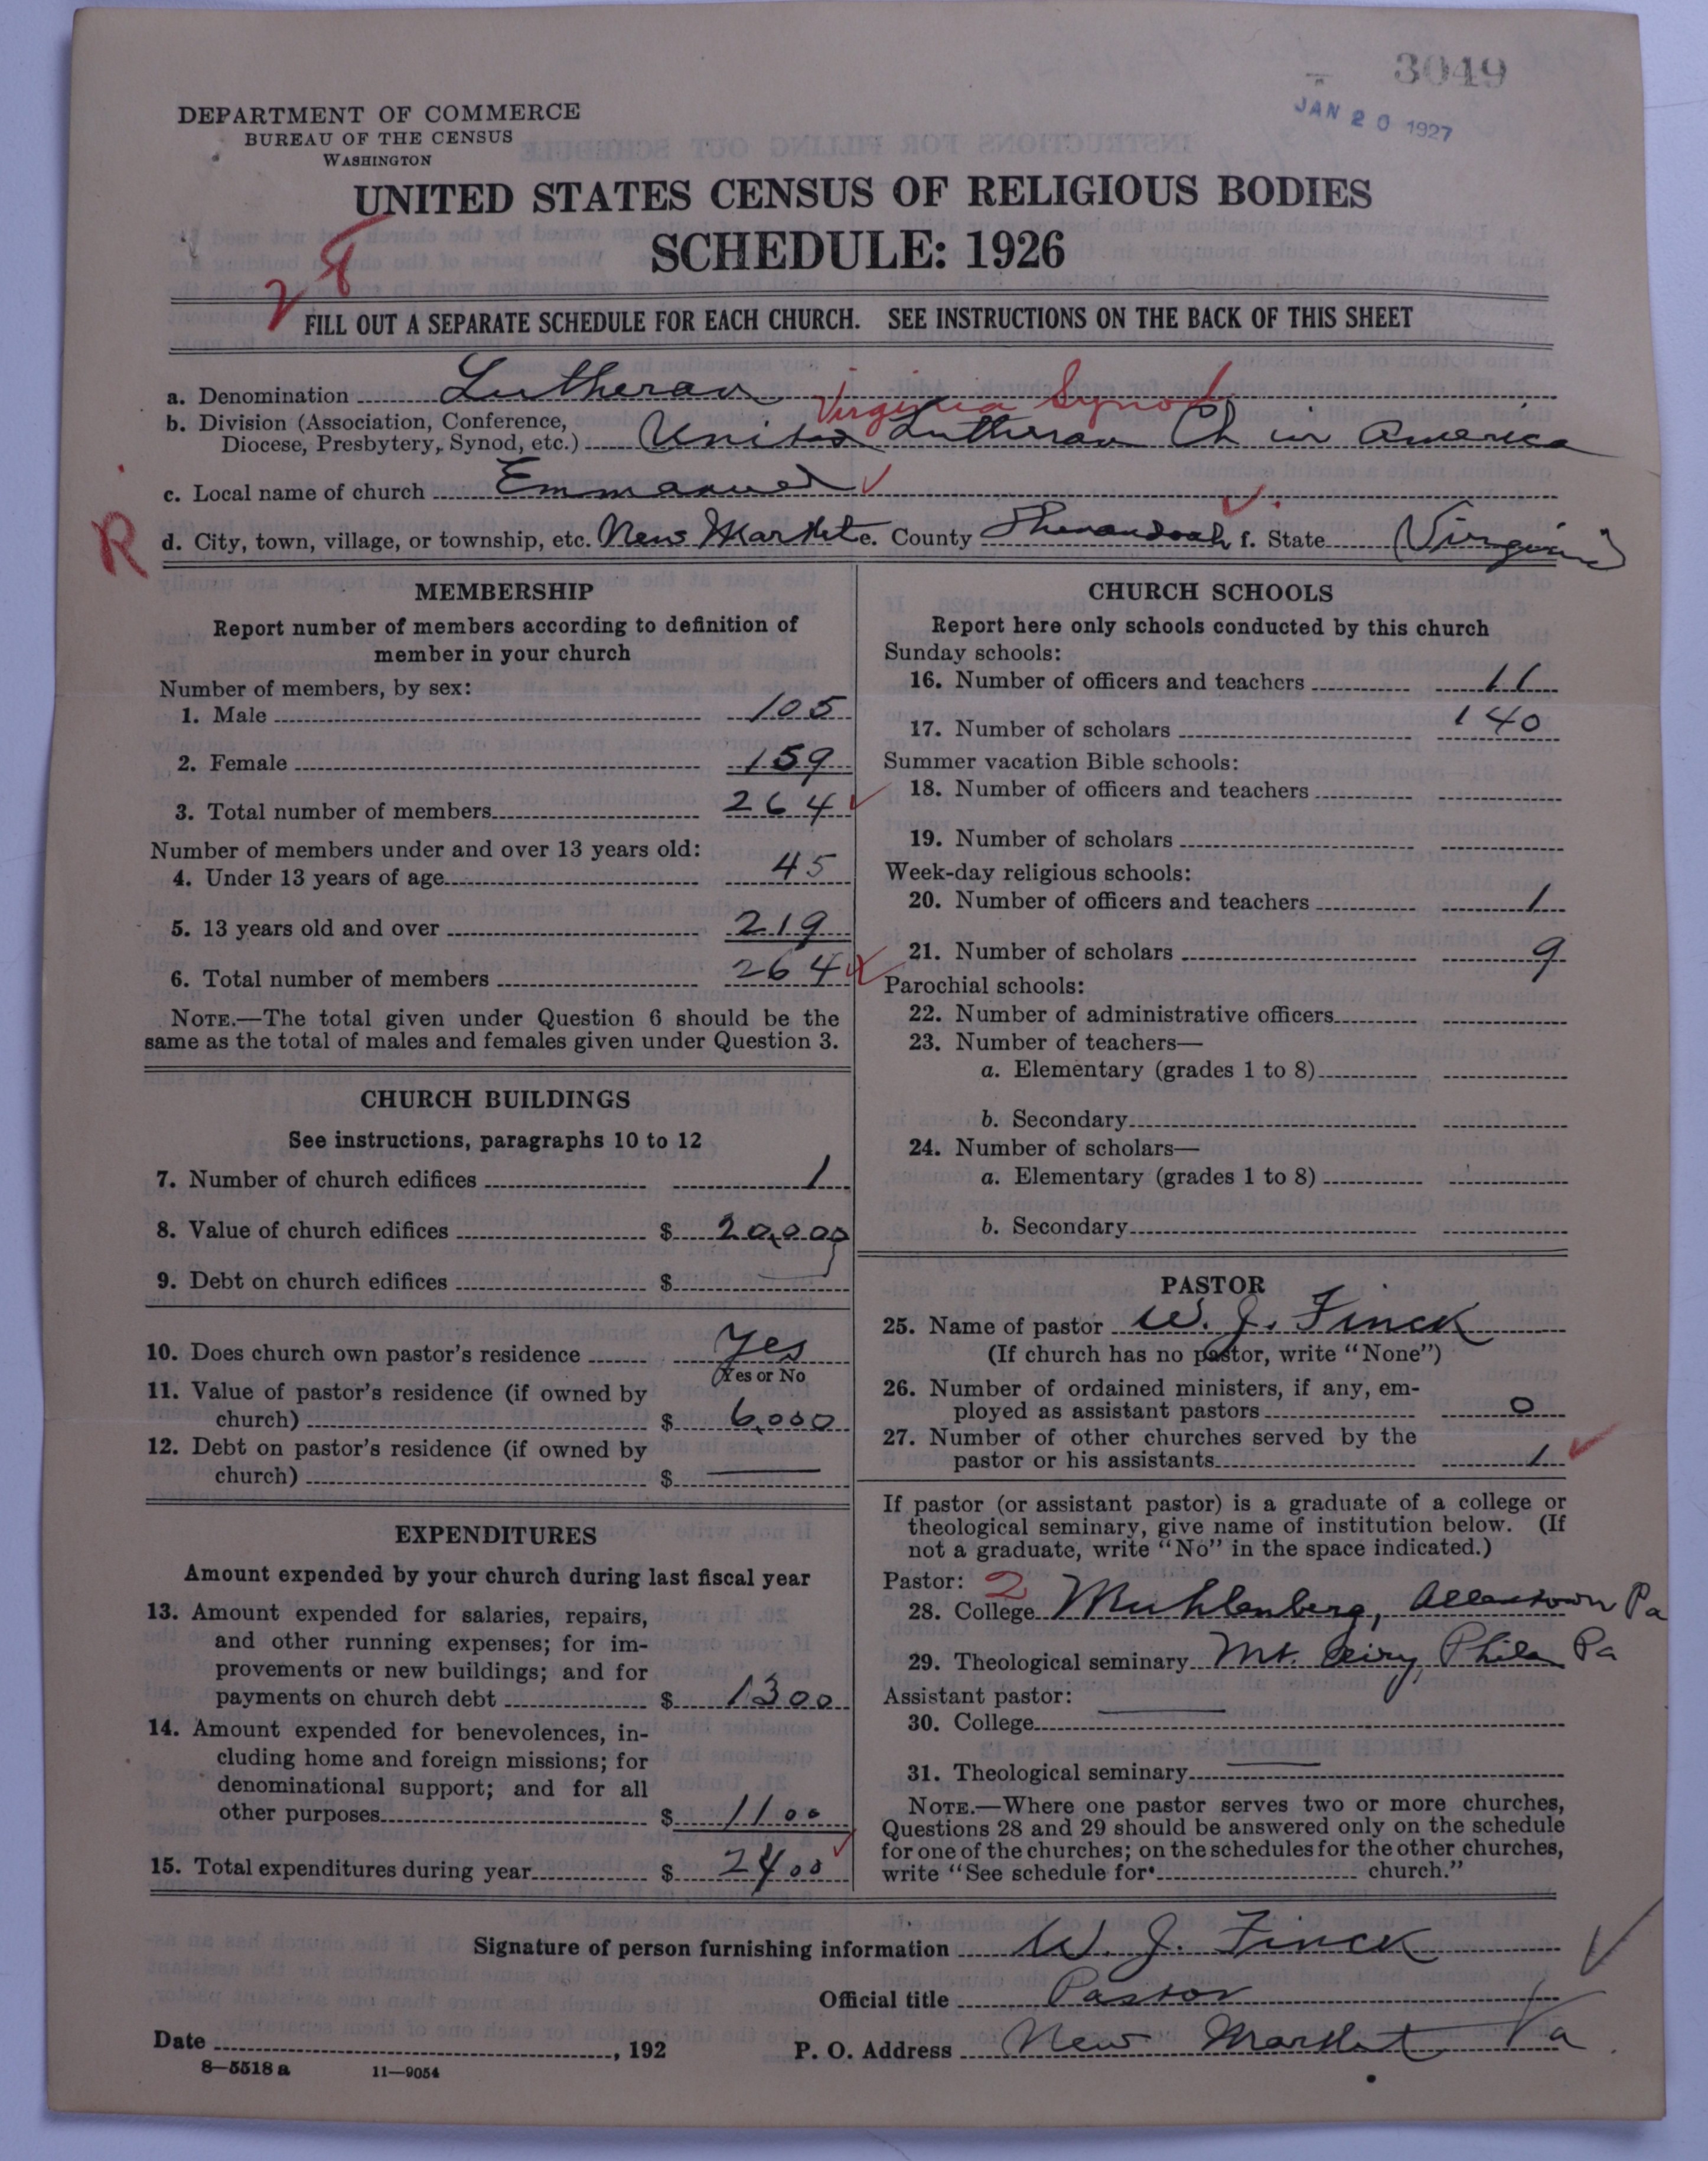 3049
JAN 20 1927
DEPARTMENT OF COMMERCE
BUREAU OF THE CENSUS
WASHINGTON
UNITED STATES CENSUS OF RELIGIOUS BODIES
SCHEDULE: 1926
28
FILL OUT A SEPARATE SCHEDULE FOR EACH CHURCH. SEE INSTRUCTIONS ON THE BACK OF THIS SHEET
a. Denomination Lutheran
Virginia Synod
b. Division (Association, Conference,
Diocese, Presbytery, Synod, etc.) United Lutheran Ch in America
c. Local name of church Emmanuel
R
d. City, town, village, or township, etc. New Market e. County Shenandoah f. State Virginia
MEMBERSHIP
Report number of members according to definition of
member in your church
Number of members, by sex:
1. Male 105
2. Female 159
3. Total number of members 264
Number of members under and over 13 years old:
4. Under 13 years of age 45
5. 13 years old and over 219
6. Total number of members 264
NOTE.—The total given under Question 6 should be the
same as the total of males and females given under Question 3.
CHURCH BUILDINGS
See instructions, paragraphs 10 to 12
7. Number of church edifices 1
8. Value of church edifices $ 20,000
9. Debt on church edifices $
10. Does church own pastor's residence Yes
Yes or No
11. Value of pastor's residence (if owned by
church) $ 6,000
12. Debt on pastor's residence (if owned by
church) $ —
EXPENDITURES
Amount expended by your church during last fiscal year
13. Amount expended for salaries, repairs,
and other running expenses; for im-
provements or new buildings; and for
payments on church debt $ 1300
14. Amount expended for benevolences, in-
cluding home and foreign missions; for
denominational support; and for all
other purposes $ 1100
15. Total expenditures during year $ 2400
CHURCH SCHOOLS
Report here only schools conducted by this church
Sunday schools:
16. Number of officers and teachers 11
17. Number of scholars 140
Summer vacation Bible schools:
18. Number of officers and teachers
19. Number of scholars
Week-day religious schools:
20. Number of officers and teachers 1
21. Number of scholars 9
Parochial schools:
22. Number of administrative officers
23. Number of teachers—
a. Elementary (grades 1 to 8)
b. Secondary
24. Number of scholars—
a. Elementary (grades 1 to 8)
b. Secondary
PASTOR
25. Name of pastor W. J. Finck
(If church has no pastor, write "None")
26. Number of ordained ministers, if any, em-
ployed as assistant pastors 0
27. Number of other churches served by the
pastor or his assistants 1
If pastor (or assistant pastor) is a graduate of a college or
theological seminary, give name of institution below. (If
not a graduate, write "No" in the space indicated.)
Pastor: 2
28. College Muhlenberg, Allentown Pa
29. Theological seminary Mt. Airy, Phila Pa
Assistant pastor:
30. College
31. Theological seminary
NOTE.—Where one pastor serves two or more churches,
Questions 28 and 29 should be answered only on the schedule
for one of the churches; on the schedules for the other churches,
write "See schedule for church."
Signature of person furnishing information W. J. Finck
Official title Pastor
Date , 192 P. O. Address New Market Va
8—5518 a 11—9054